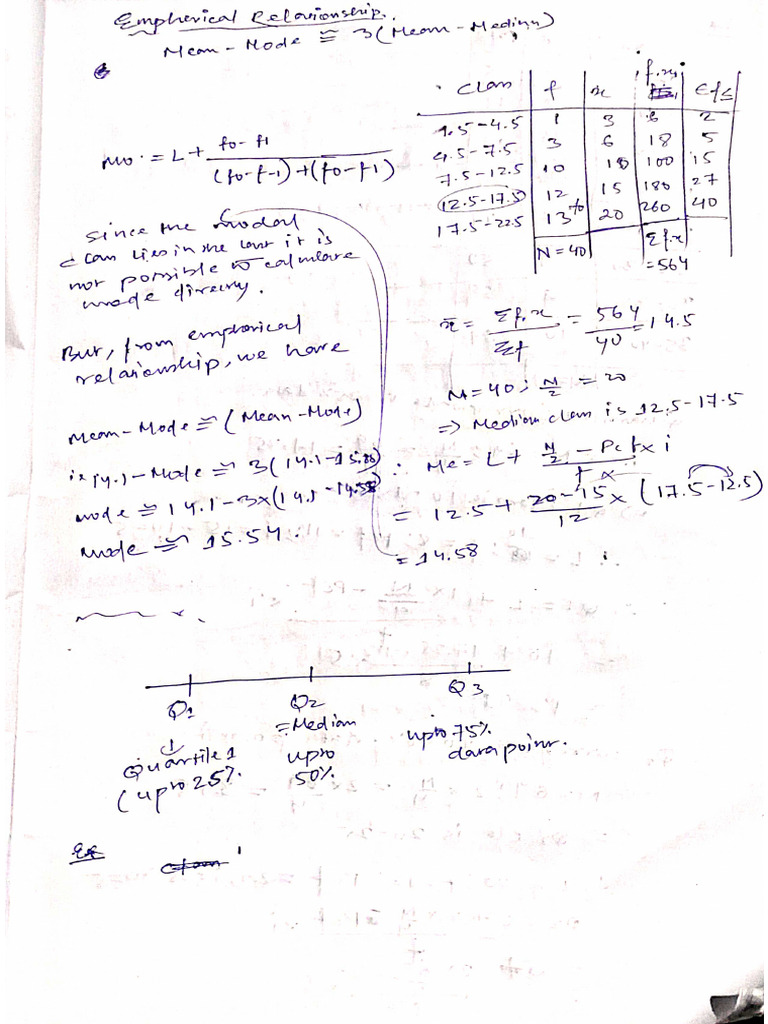 Empherical Relationship.
Mean - Mode ≅ 3(Mean - Median)
Class | f | x | f.x | cf≤
1.5-4.5 | 1 | 3 | 6 | 2
4.5-7.5 | 3 | 6 | 18 | 5
7.5-12.5 | 10 | 10 | 100 | 15
12.5-17.5 | 12 | 15 | 180 | 27
17.5-22.5 | 13 | 20 | 260 | 40
N = 40 | Σf.x = 564
Mo = L + f0 - f1 / (f0 - f-1) + (f0 - f1)
Since the modal
class lies in the last it is
not possible to calculate
mode directly.
But, from empherical
relationship, we have
Mean - Mode ≅ (Mean - Mode)
ie 14.1 - Mode ≅ 3(14.1 -
mode ≅ 14.1 - 3x(14.1 - 14.58)
mode ≅ 15.54.
x̄ = Σf.x / Σf = 564 / 40 = 14.5
N = 40; N/2 = 20
⇒ Median class is 12.5-17.5
∴ Me = L + N/2 - Pcf / f x i
= 12.5 + 20-15 / 12 x (17.5-12.5)
= 14.58
Q1 Q2 Q3
= Median
Quartile 1
(upto 25%.
upto
50%.
upto 75%.
data point.
Ex